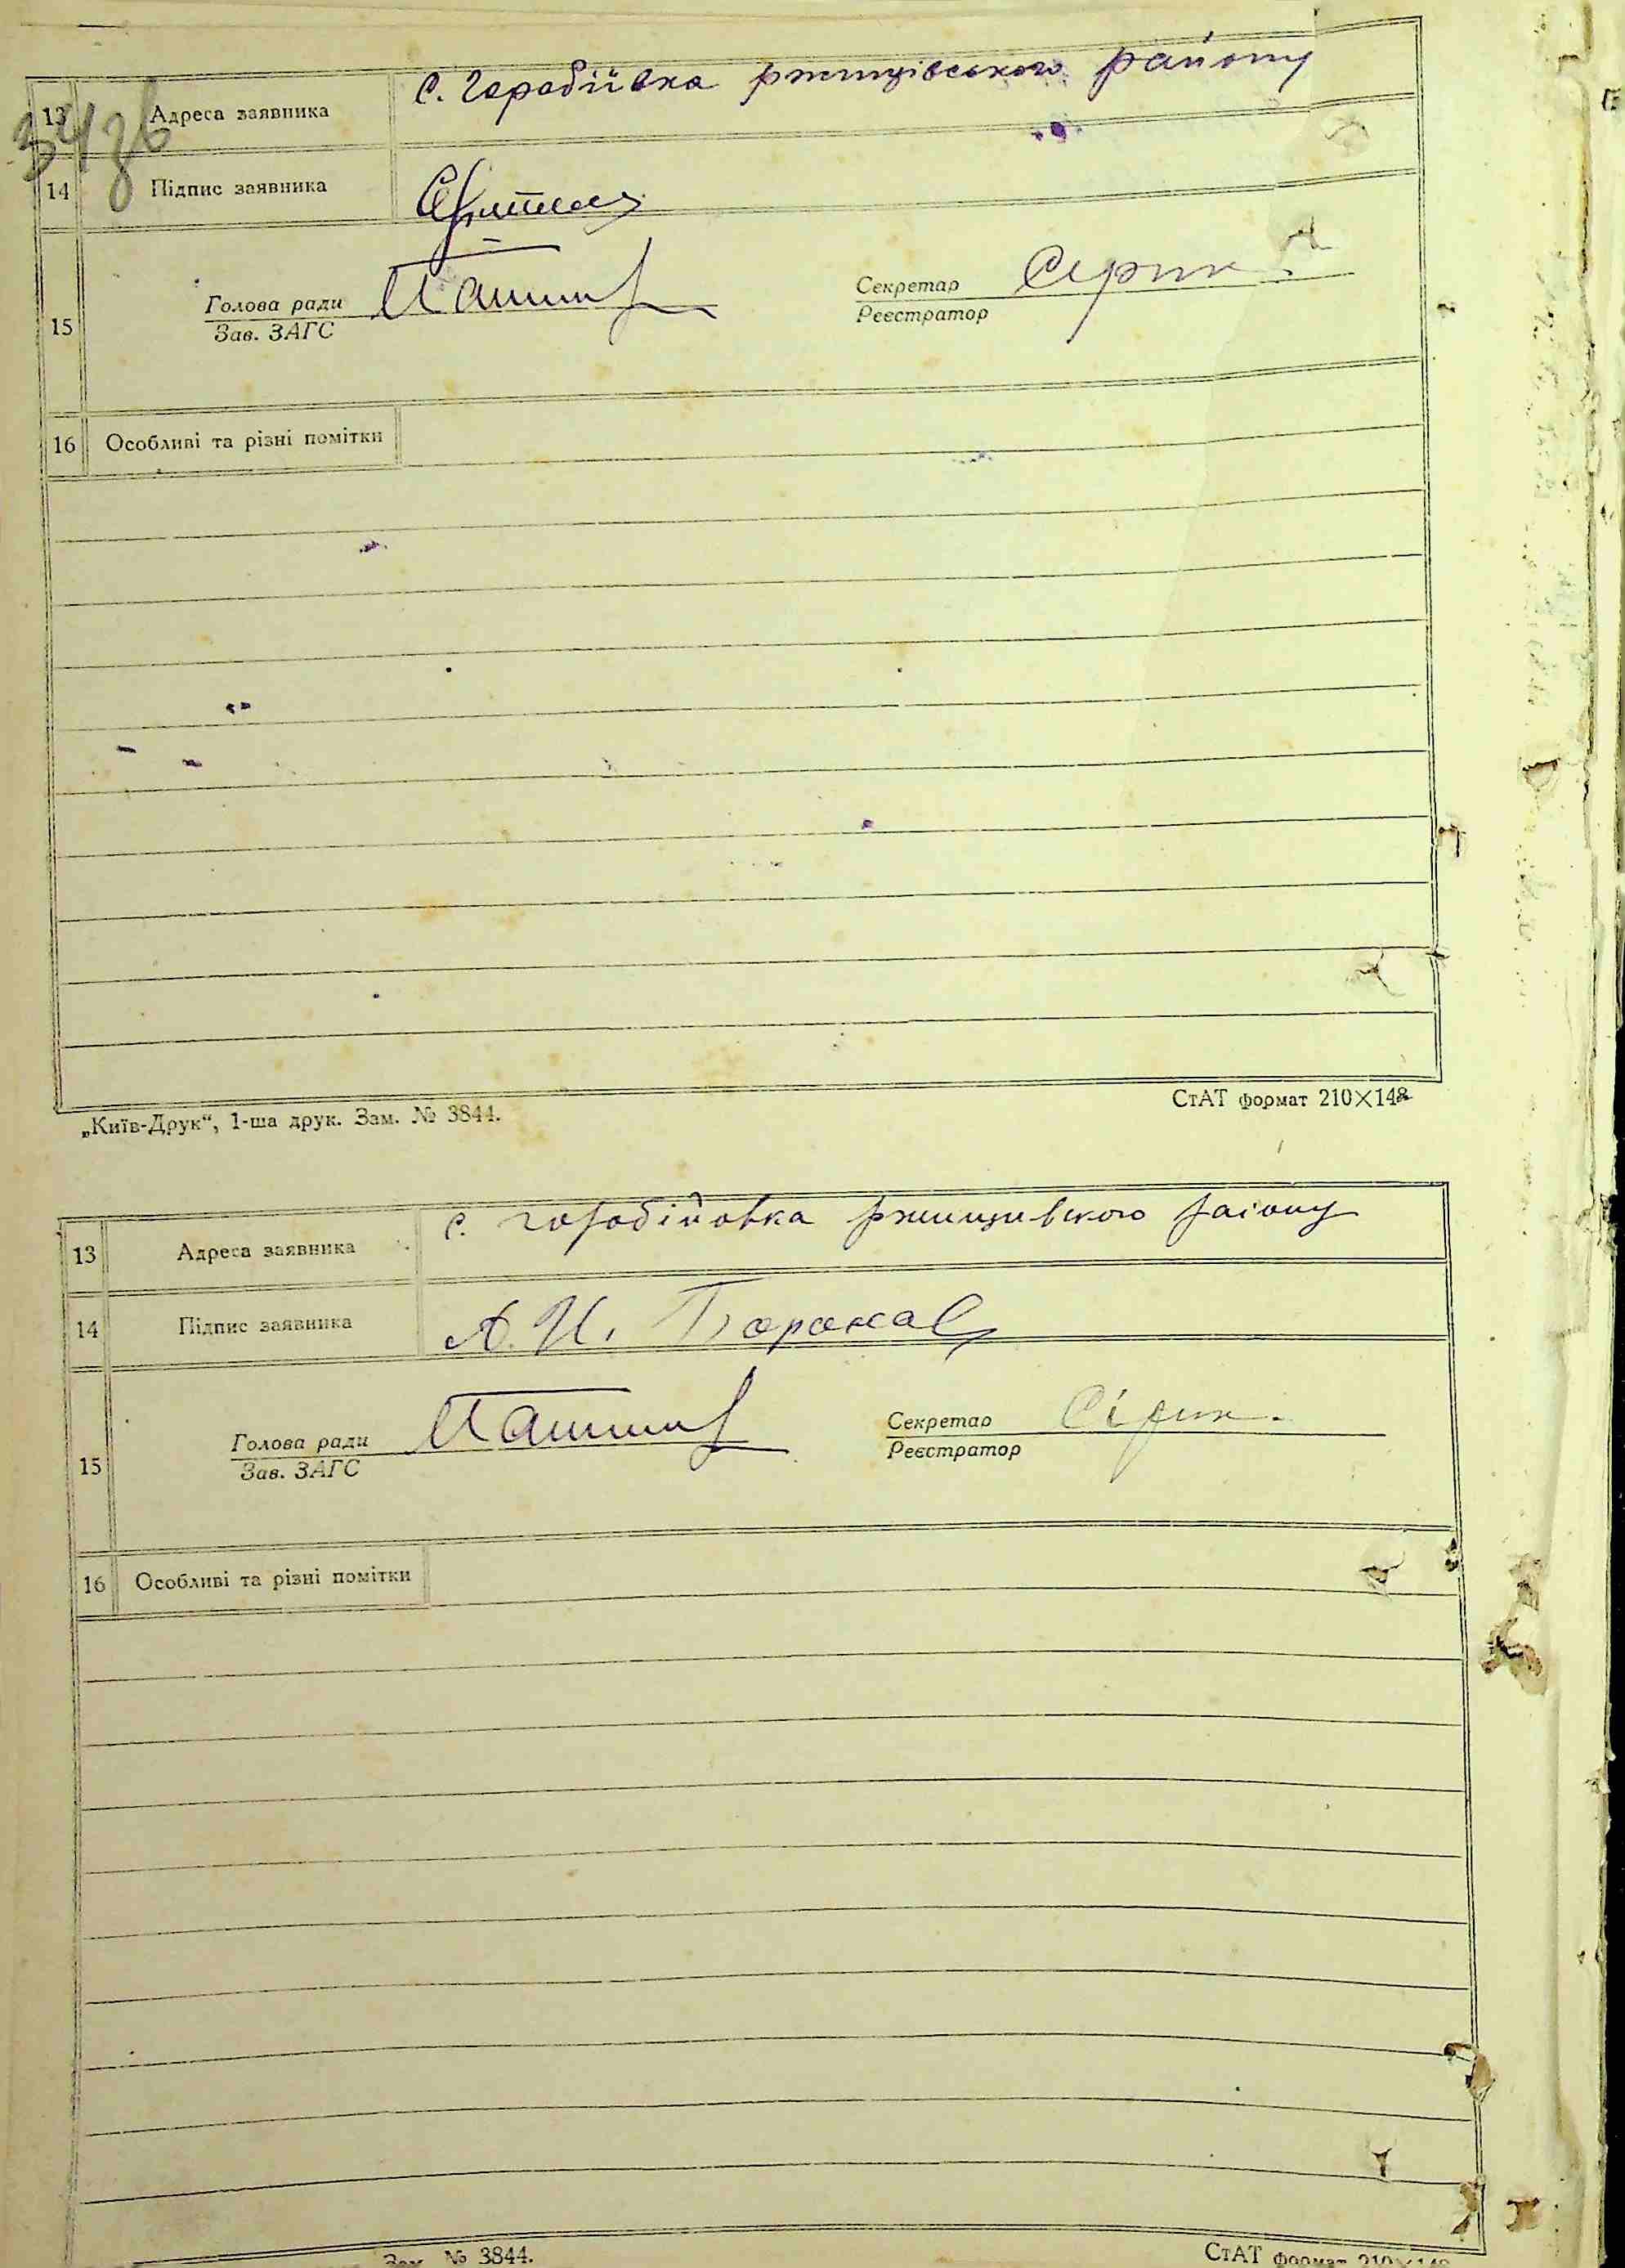 13 Адреса заявника с. Горобіївка ржищівського району
34зв
14 Підпис заявника
15 Голова ради Секретар Сірик
Зав. ЗАГС Реєстратор
16 Особливі та різні помітки
„Київ-Друк“, 1-ша друк. Зам. № 3844. СтАТ формат 210×148
13 Адреса заявника с. горобійовка ржищивского раіону
14 Підпис заявника А. И.
15 Голова ради Секретар Сірик.
Зав. ЗАГС Реєстратор
16 Особливі та різні помітки
Зам. № 3844. СтАТ формат 210×148